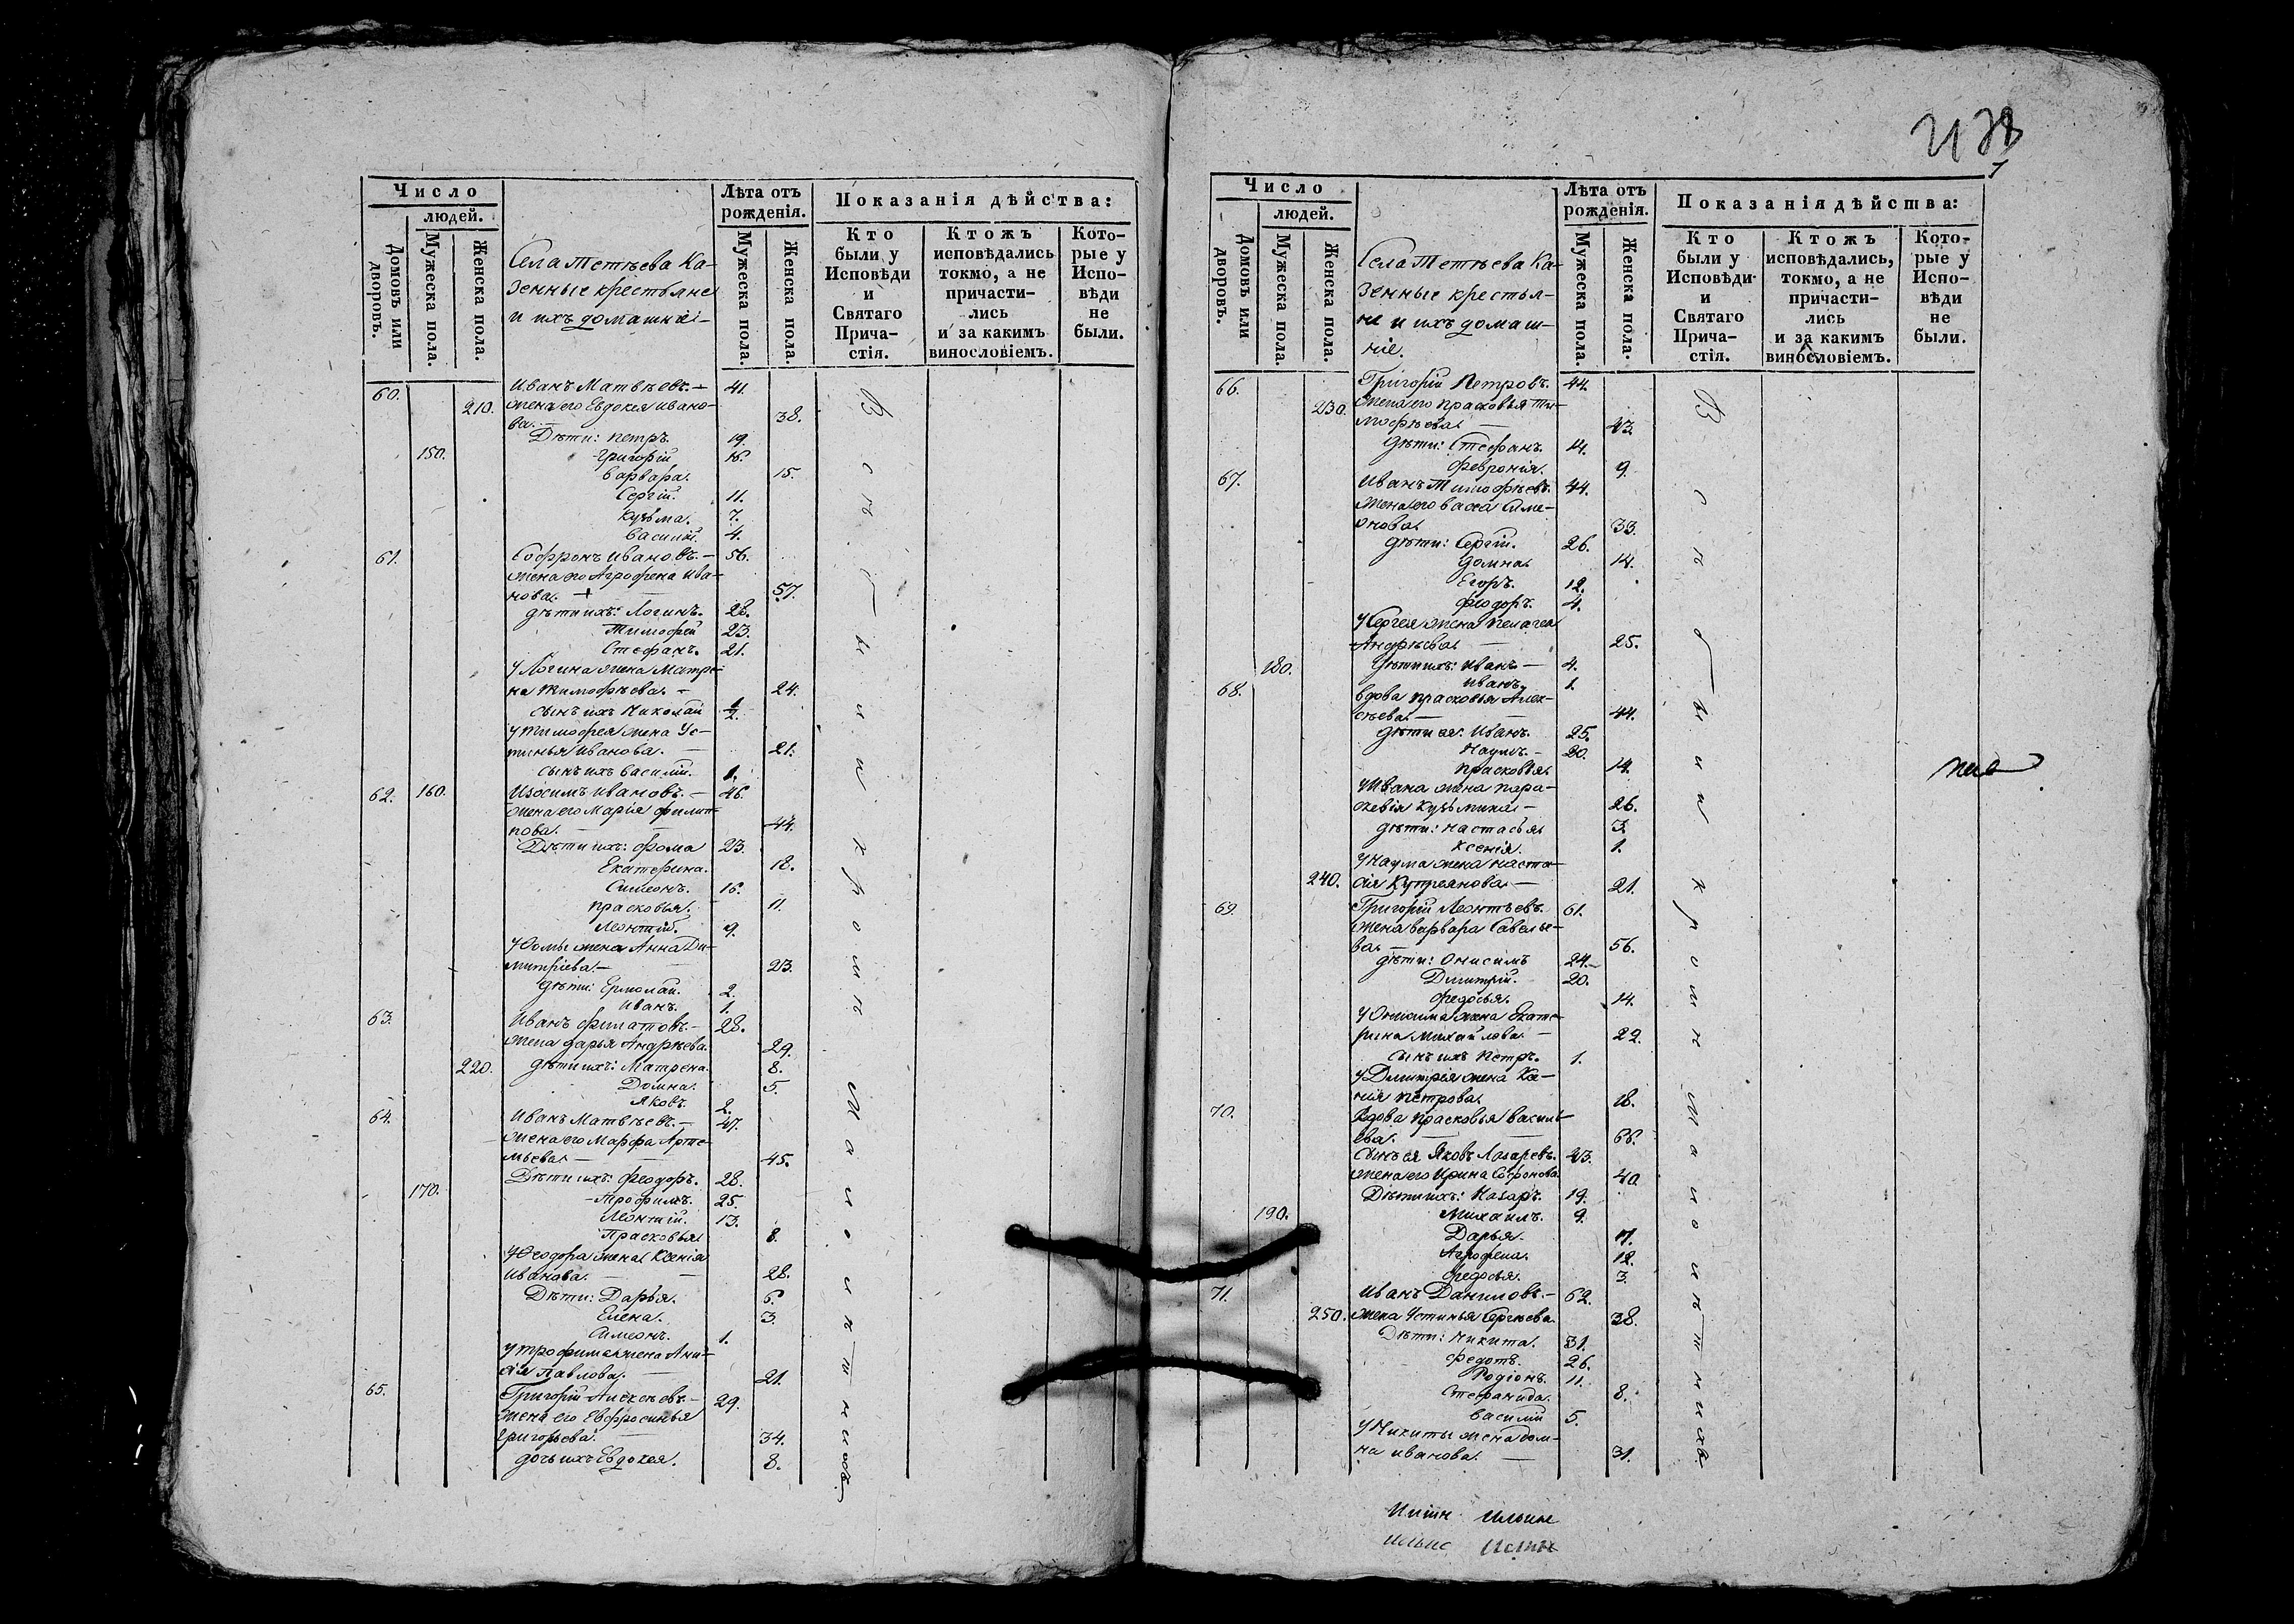 Число
людей.
Домовъ или дворовъ.
Мужеска пола.
Женска пола.
Лѣта отъ рожденія.
Мужеска пола.
Женска пола.
Показанія дѣйства:
Кто были у Исповѣди и Святаго Прича-стія.
Ктожъ исповѣдались токмо, а не причасти-лись и за какимъ винословіемъ.
Кото-рые у Испо-вѣди не были.
Села Тетѣева Ка-
зенные крестьяне
и ихъ домашніе
60. Иванъ Матвѣевъ. 41.
210. жена его Евдокея Ивано-
ва. 38.
Дѣти: Петръ 19.
150. Григорій 16.
Варвара. 15.
Сергій. 11.
Кузьма. 7.
Василій. 4.
61. Софронъ Ивановъ. 56.
жена его Агрофена Ива-
нова. 57.
дѣти ихъ: Логинъ. 28.
Тимофей 23.
Стефанъ. 21.
У Логина жена Матре-
на Тимофѣева. 24.
сынъ ихъ Николай 1/2.
У Тимофея жена Ус-
тинья Иванова. 21.
сынъ ихъ Василій. 1.
62. 160. Изосимъ Ивановъ. 46.
жена его Марія Филип-
пова. 44.
Дѣти ихъ: Фома 23.
Екатерина. 18.
Симеонъ. 16.
Прасковья. 11.
Леонтій. 9.
У Фомы жена Анна Ди-
митріева. 23.
дѣти: Ермолай. 2.
Иванъ. 1.
63. Иванъ Филатовъ. 28.
жена Дарья Андрѣева. 29.
220. дѣти ихъ: Матрена. 8.
Домна. 5.
Яковъ. 2.
64. Иванъ Матвѣевъ. 47.
жена его Марфа Арте-
мьева. 45.
Дѣти ихъ: Феодоръ. 28.
170. Трофимъ. 25.
Леонтій. 13.
Прасковья 8.
У Феодора жена Ксенія
Иванова. 28.
Дѣти: Дарья. 6.
Елена. 3.
Симеонъ. 1.
У Трофима жена Ани-
сія Павлова. 21.
65. Григорій Алексѣевъ. 29.
жена его Евфросинья
Григорьева. 34.
дочь ихъ Евдокея. 8.
Число
людей.
Домовъ или дворовъ.
Мужеска пола.
Женска пола.
Лѣта отъ рожденія.
Мужеска пола.
Женска пола.
Показанія дѣйства:
Кто были у Исповѣди и Святаго Прича-стія.
Ктожъ исповѣдались, токмо, а не причасти-лись и за какимъ винословіемъ.
Кото-рые у Испо-вѣди не были.
Села Тетѣева Ка-
зенные крестья-
не и ихъ домаш-
ніе.
66. Григорій Петровъ. 44.
230. жена его Прасковья Ти-
мофѣева 43.
дѣти: Стефанъ. 14.
Февронія. 9.
67. Иванъ Тимофѣевъ. 44.
жена его Васса Симе-
онова 33.
дѣти: Сергій. 26.
Домна 14.
Егоръ. 12.
Феодоръ. 4.
У Сергея жена Пелагея
Андрѣева 25.
180. Дѣти ихъ: Иванъ 4.
Иванъ. 1.
68. Вдова Прасковья Алек-
сѣева 44.
дѣти ея: Иванъ. 25.
Наумъ. 20.
Прасковья 14.
У Ивана жена Пара-
скевія Кузьмина 26.
дѣти: Настасья 3.
Ксенія. 1.
У Наума жена Наста-
240. сія Купреянова 21.
69. Григорій Леонтьевъ. 61.
жена Варвара Савелье-
ва 56.
дѣти: Онисимъ 24.
Дмитрій. 20.
Федосья. 14.
У Онисима жена Екате-
рина Михайлова. 22.
сынъ ихъ Петръ. 1.
У Дмитрія жена Ксе-
нія Петрова 18.
70. Вдова Прасковья Василь-
ева. 66.
сынъ ея Яковъ Лазаревъ. 43.
жена его Ирина Софронова 40.
Дѣти ихъ: Назаръ. 19.
190. Михаилъ. 9.
Дарья. 17.
Агрофена. 12.
Федосья. 3.
71. Иванъ Даниловъ. 62.
250. жена Устинья Сергѣева. 38.
Дѣти: Никита. 31.
Федотъ. 26.
Родіонъ. 11.
Стефанида. 8.
Василій 5.
У Никиты жена Дом-
на Иванова. 31.